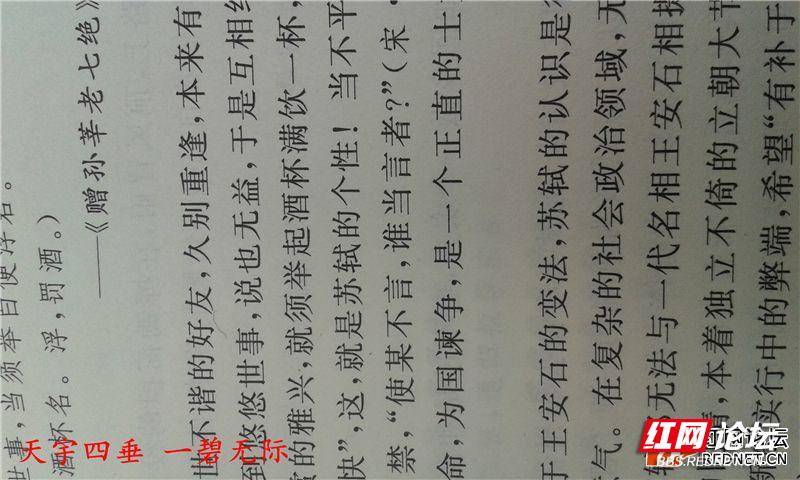 世事，当须举白便浮君。
酒杯名。浮，罚酒。）
——《赠孙莘老七绝》
世不谐的好友，久别重逢，本来有
到悠悠世事，说也无益，于是互相约
的雅兴，就须举起酒杯满饮一杯，
快”，这，就是苏轼的个性！当不平
禁，“使某不言，谁当言者？”（宋·
命，为国谏争，是一个正直的士
于王安石的变法，苏轼的认识是
气。在复杂的社会政治领域，无
无法与一代名相王安石相
，本着独立不倚的立朝大节
实行中的弊端，希望“有补于
天宇四垂 一碧无际
红网论坛
BBS.REDNET.CN